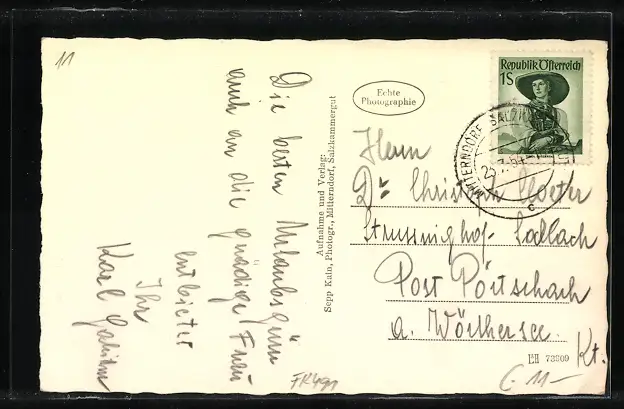 11
Die besten Urlaubsgrüße
auch an die gnädige Frau
entbietet
Ihr
Karl
Aufnahme und Verlag:
Sepp Kain, Photogr., Mitterndorf, Salzkammergut
Echte
Photographie
Republik Österreich
1S
MITTERNDORF SALZKAM
c
Herrn
Dr Christoph
Strussnighof - Sallach
Post Pörtschach
a. Wörthersee.
Kt.
73909
FR491
C 11-